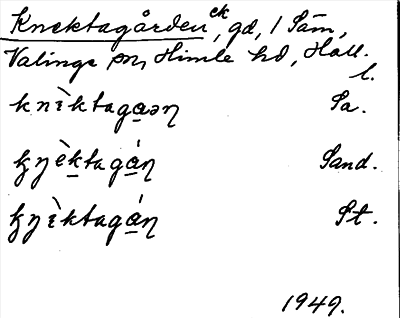 Knektagården ck, gd, 1 Säm,
Valinge sn, Himle hd, Hall.
l.
knìktagaən Sa.
kn̥èktagán Sand.
kn̥ìktagán St.
1949.